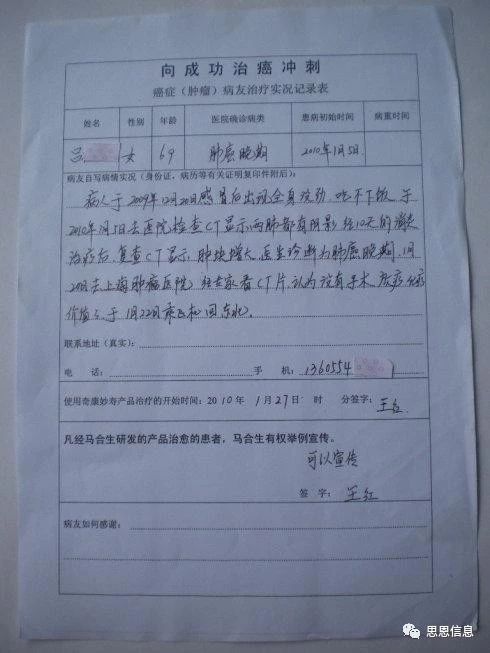 向成功治癌冲刺
癌症（肿瘤）病友治疗实况记录表
姓名 性别 年龄 医院确诊病类 患病初始时间 病重时间
吕 女 69 肺癌晚期 2010年1月5日
病友自写病情实况（身份证，病历等有关证明复印件附后）：
病人于2009年12月20日感冒后出现全身没劲、吃不下饭，于
2010年1月5日去医院检查CT显示，两肺都有阴影，经10天的消炎
治疗后，复查CT显示，肿块增大，医生诊断为肺癌晚期，1月
20日去上海肿瘤医院，经专家看CT片，认为没有手术、放疗、化疗
价值了，于1月22日乘飞机回东北。
联系地址（真实）：
电 话： 手 机：1360554
使用奇康妙寿产品治疗的开始时间：2010年1月27日 时 分签字：王红
凡经马合生研发的产品治愈的患者，马合生有权举例宣传。
可以宣传
签 字：王红
病友如何感谢：
思恩信息